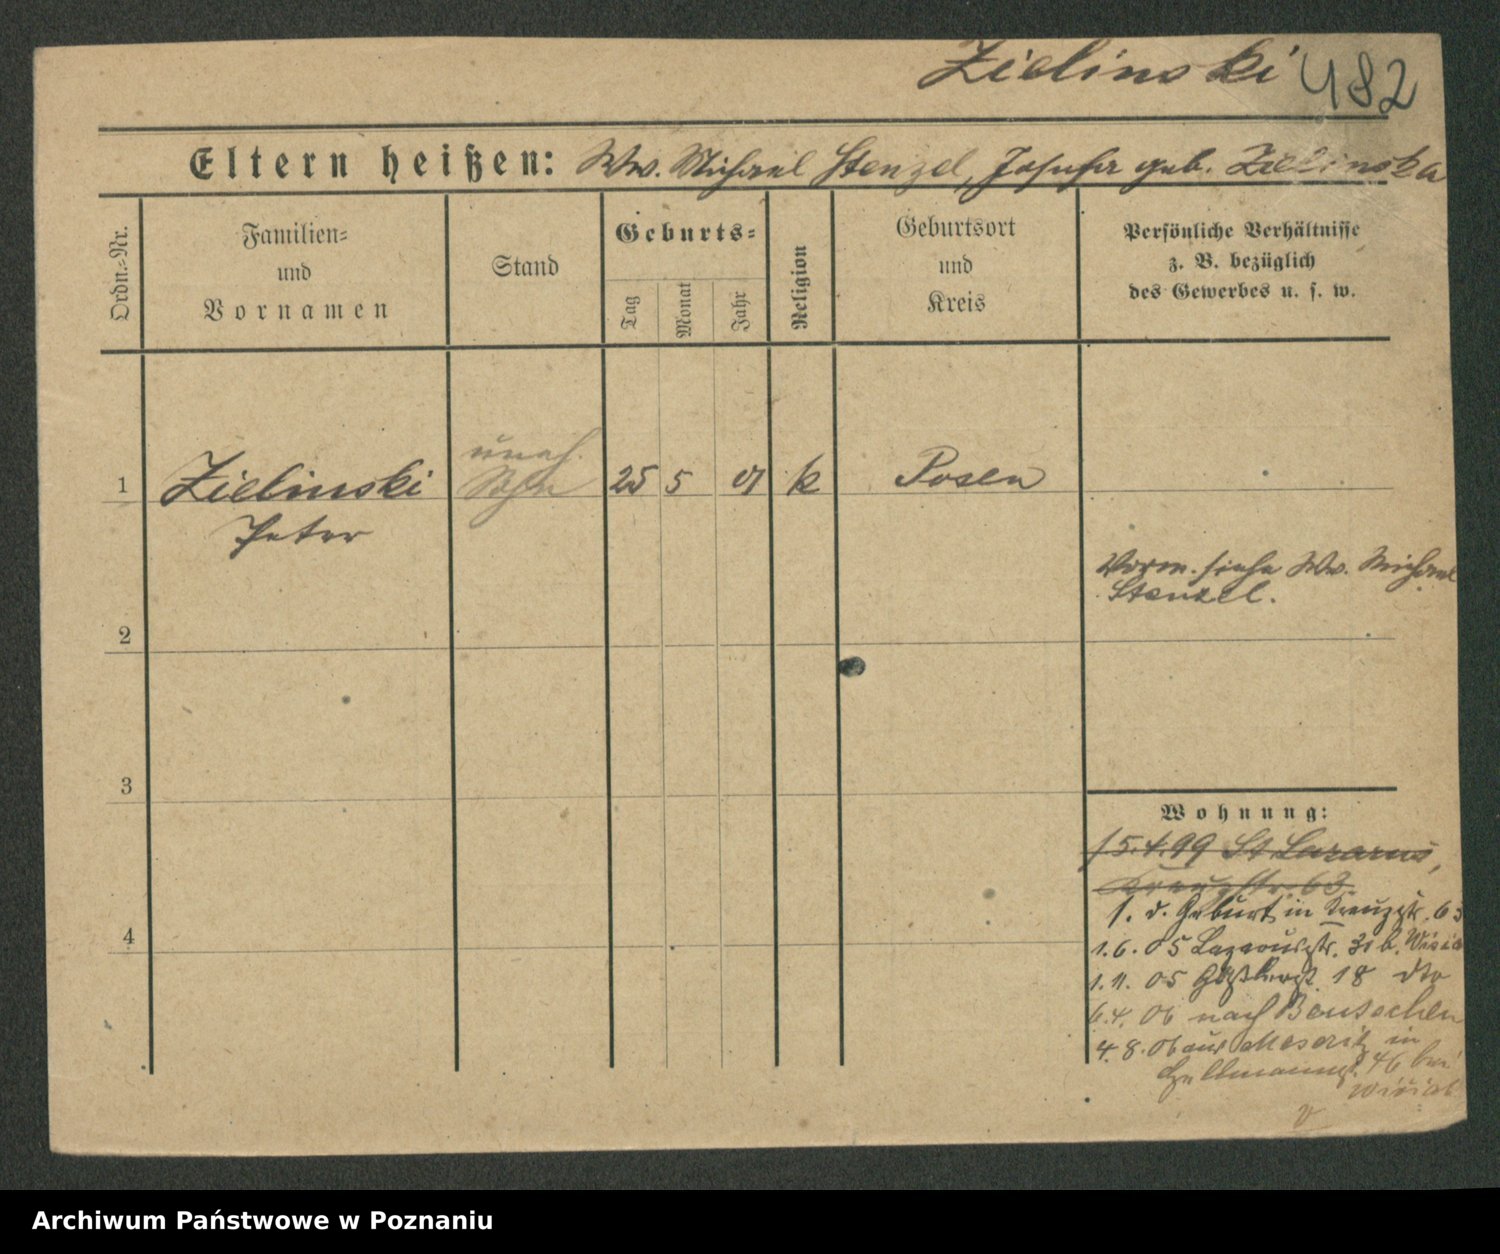 Zielinski 482
Eltern heißen: Ww. Michael Stenzel, Josefa geb. Zielinska
Ordn.-Nr.
Familien-
und
Vornamen
Stand
Geburts-
Tag
Monat
Jahr
Religion
Geburtsort
und
Kreis
Persönliche Verhältnisse
z. B. bezüglich
des Gewerbes u. s. w.
1 Zielinski uneh. 25 5 01 k Posen
Sohn
Peter
Vorm. siehe Ww. Michael
Stenzel.
2
3
4
Wohnung:
15.4.99 St. Lazarus,
Kreuzstr. 63
1. d. Geburt in Kreuzstr. 63
1.6.05 Lazarusstr. 31 b.
1.11.05 18 dto
6.4.06 nach Bentschen
4.8.06 aus Meseritz in
46 bei